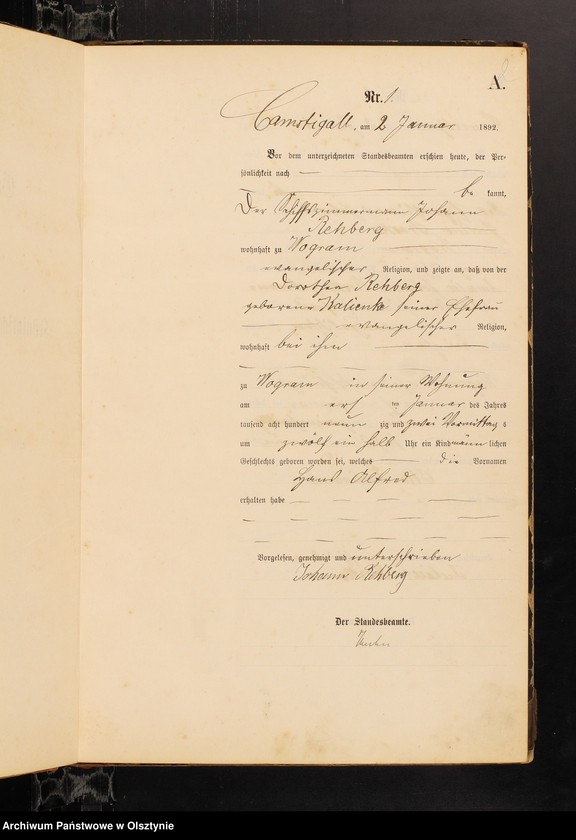 A.
Nr. 1.
Camstigall, am 2 Januar 1892.
Vor dem unterzeichneten Standesbeamten erschien heute, der Per-
sönlichkeit nach
be kannt,
Der Schiffszimmermann Johann
Rehberg
wohnhaft zu Wogram
evangelischer Religion, und zeigte an, daß von der
Dorothea Rehberg
geborene Kalienke seiner Ehefrau
evangelischer Religion,
wohnhaft bei ihm
zu Wogram in seiner Wohnung
am ten Januar des Jahres
tausend acht hundert neun zig und zwei Vormittag s
um zwölf ein halb Uhr ein Kind männ lichen
Geschlechts geboren worden sei, welches die Vornamen
Hans Alfred
erhalten habe
Vorgelesen, genehmigt und unterschrieben
Johann Rehberg
Der Standesbeamte.
Archiwum Państwowe w Olsztynie